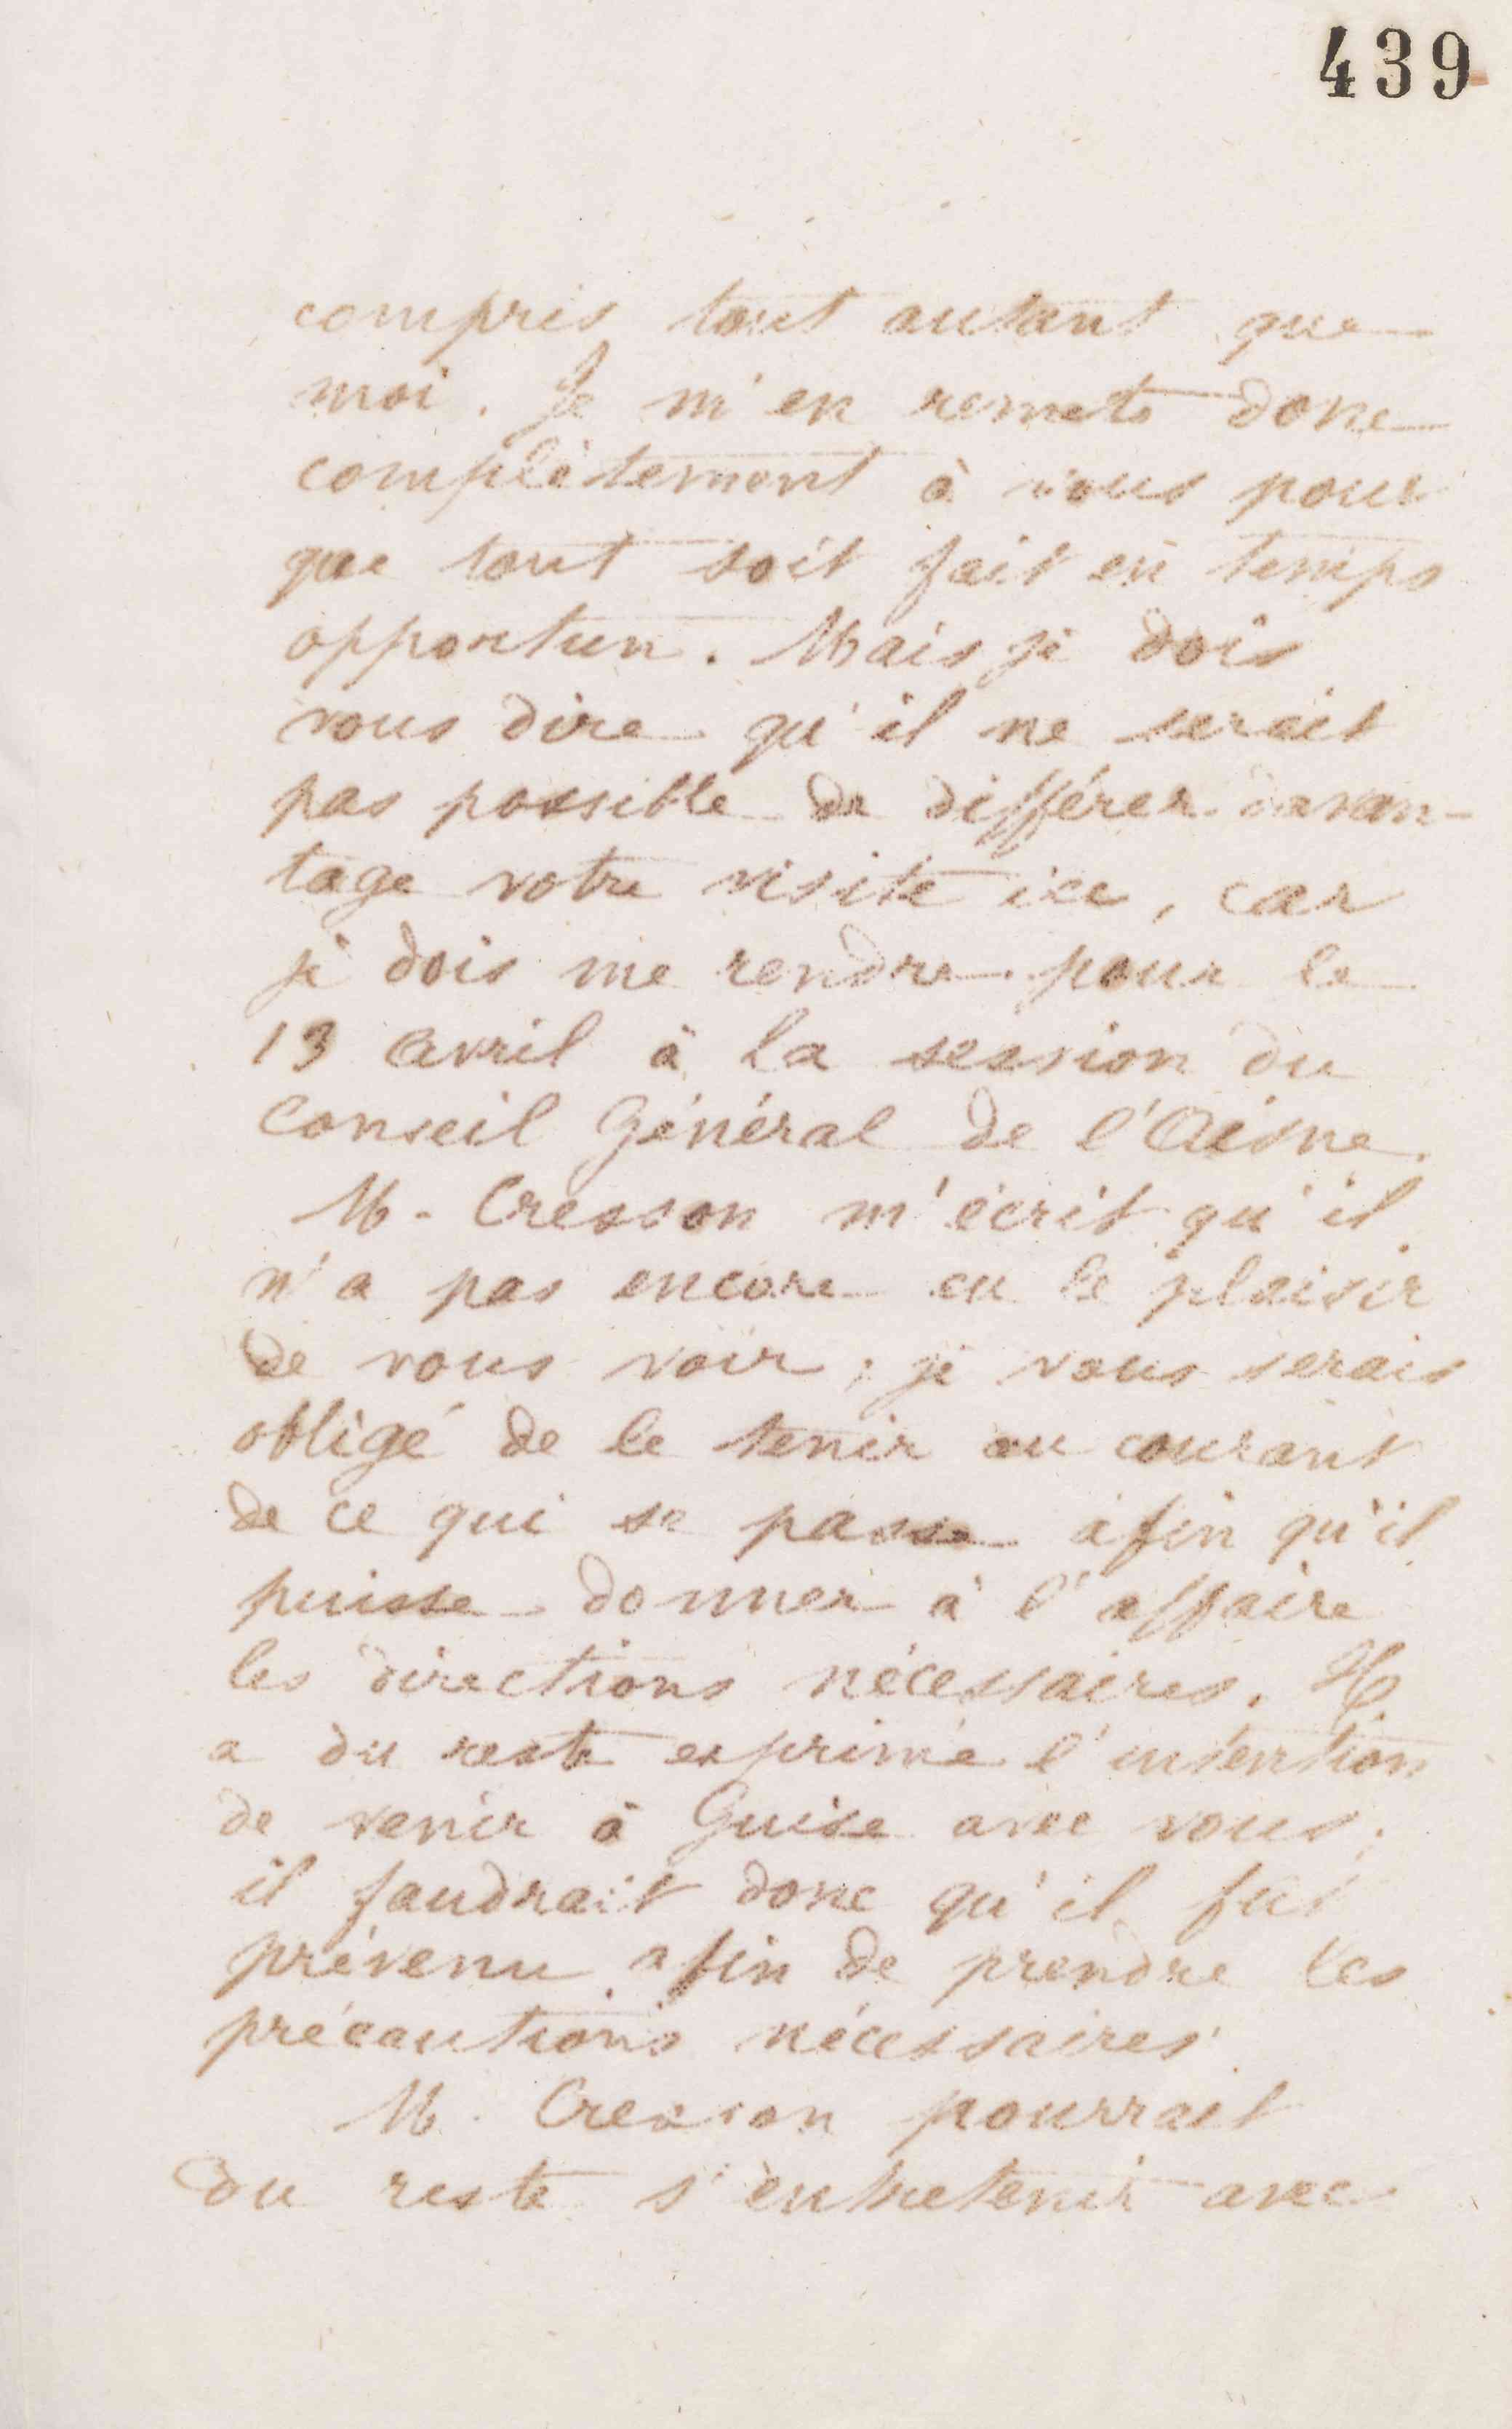 439
compris tout autant que
moi. Je m'en remets donc
complètement à vous pour
que tout soit fait en temps
opportun. Mais je dois
vous dire qu'il ne serait
pas possible de différer davan-
tage votre visite ici, car
je dois me rendre pour le
13 avril à la session du
Conseil Général de l'Aisne.
M. Cresson m'écrit qu'il
n'a pas encore eu le plaisir
de vous voir ; je vous serais
obligé de le tenir au courant
de ce qui se passe afin qu'il
puisse donner à l'affaire
les directions nécessaires. Il
a du reste exprimé l'intention
de venir à Guise avec vous ;
il faudrait donc qu'il fut
prévenu afin de prendre les
précautions nécessaires.
M. Cresson pourrait
du reste s'entretenir avec